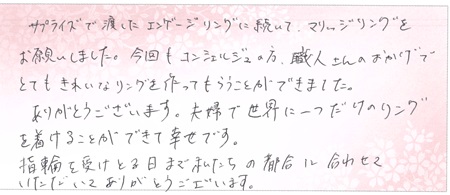 サプライズで渡したエンゲージリングに続いて、マリッジリングを
お願いしました。今回もコンシェルジュの方、職人さんのおかげで
とてもきれいなリングを作ってもらうことができました。
ありがとうございます。夫婦で世界に一つだけのリング
を着けることができて幸せです。
指輪を受けとる日まで私たちの都合に合わせて
いただいてありがとうございます。